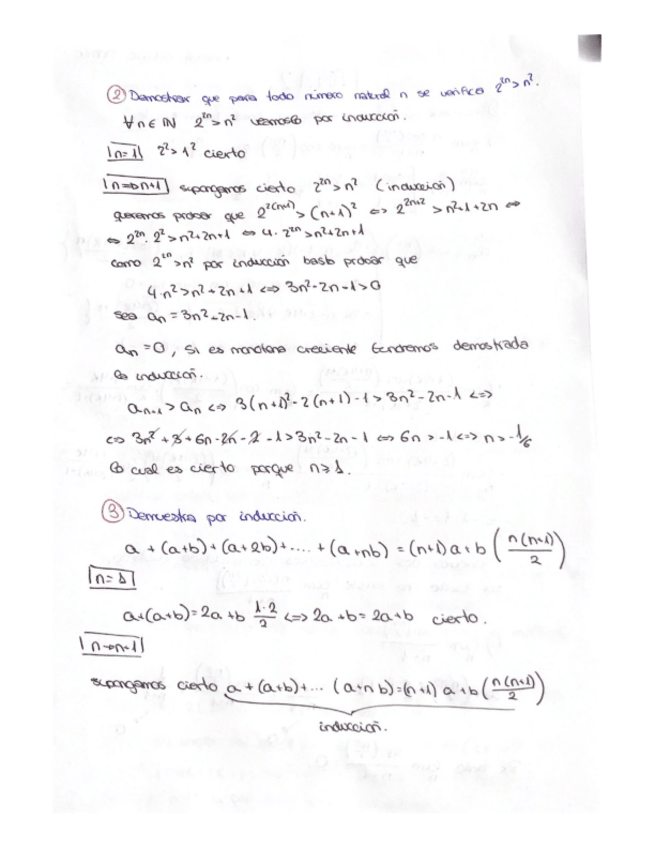 ② Demostrar que para todo número natural n se verifica 2^{2n} > n^2.
∀ n ∈ ℕ 2^{2n} > n^2 veámoslo por inducción.
n=1 2^2 > 1^2 cierto
n→n+1 supongamos cierto 2^{2n} > n^2 (inducción)
queremos probar que 2^{2(n+1)} > (n+1)^2 ⇔ 2^{2n+2} > n^2+1+2n ⇔
⇔ 2^{2n}. 2^2 > n^2+2n+1 ⇔ 4. 2^{2n} > n^2+2n+1
como 2^{2n} > n^2 por inducción basta probar que
4·n^2 > n^2+2n+1 ⇔ 3n^2-2n-1 > 0
sea a_n = 3n^2-2n-1.
a_n = 0, si es monótona creciente tendremos demostrada
la inducción.
a_{n+1} > a_n ⇔ 3(n+1)^2-2(n+1)-1 > 3n^2-2n-1 ⇔
⇔ 3n^2+3+6n-2n-2-1 > 3n^2-2n-1 ⇔ 6n > -1 ⇔ n > -1/6
lo cual es cierto porque n ≥ 1.
③ Demuestra por inducción.
a + (a+b) + (a+2b) + .... + (a+nb) = (n+1)a + b (n(n+1)/2)
n=1
a+(a+b) = 2a+b 1·2/2 ⇔ 2a+b = 2a+b cierto.
n→n+1
supongamos cierto a + (a+b) + ... (a+nb) = (n+1) a+b (n(n+1)/2)
inducción.